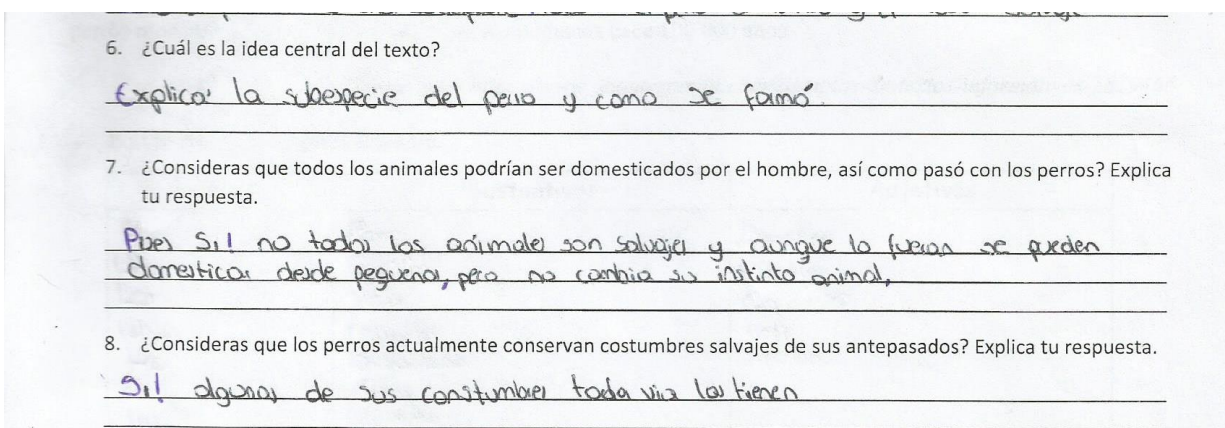 6. ¿Cuál es la idea central del texto?
Explicar la subespecie del perro y como se formó.
7. ¿Consideras que todos los animales podrían ser domesticados por el hombre, así como pasó con los perros? Explica
tu respuesta.
Pues Si! no todos los animales son salvajes y aunque lo fueran se pueden
domesticar desde pequeños, pero no cambia su instinto animal,
8. ¿Consideras que los perros actualmente conservan costumbres salvajes de sus antepasados? Explica tu respuesta.
Si! algunos de sus constumbres toda via las tienen